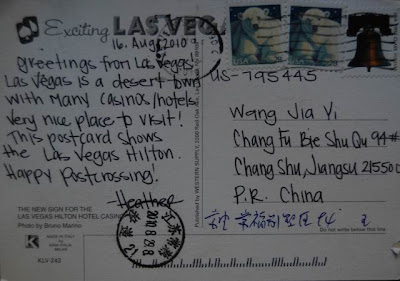 Exciting LAS VEGA
16. Aug 2010
Greetings from Las Vegas!
Las Vegas is a desert town
with many casinos/hotels!
Very nice place to visit!
This postcard shows
the Las Vegas Hilton.
Happy Postcrossing!
Heather
THE NEW SIGN FOR THE
LAS VEGAS HILTON HOTEL CASINO
Photo by Bruno Marino
K
KLV-243
Published by WESTERN SUPPLY
USA
USA
US-795445
Wang Jia Yi
Chang Fu Bie Shu Qu 94#
Changshu, Jiangsu 215500
P.R. China
Do not write below this line.
江苏常熟
2010.8.29.8